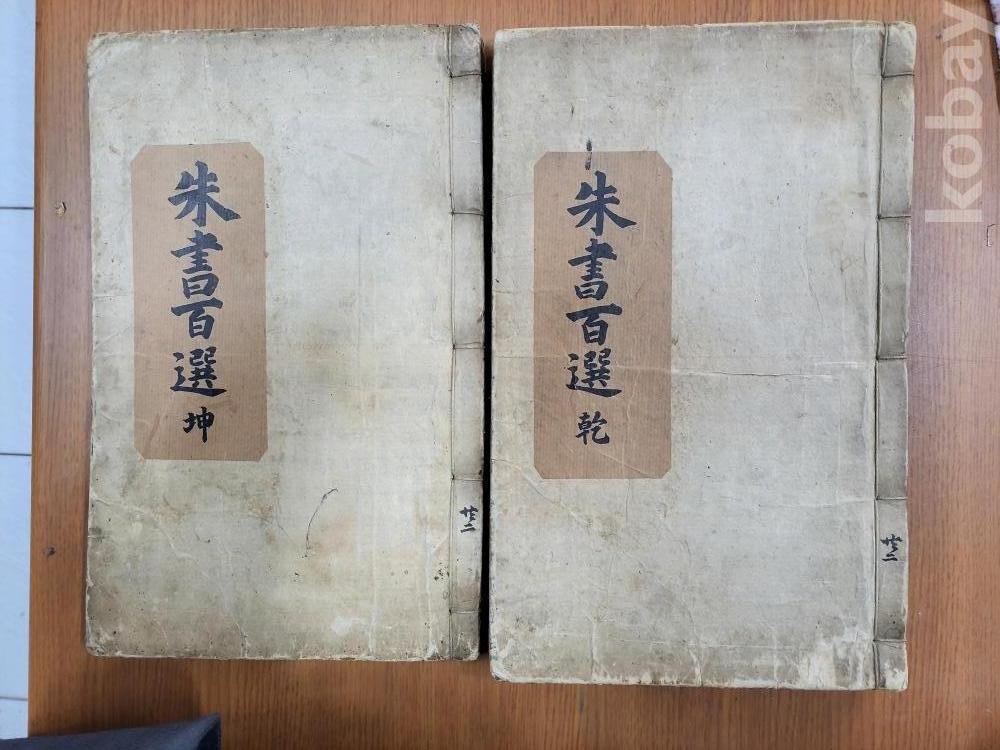 朱書百選 乾
共二
朱書百選 坤
共二
kobay